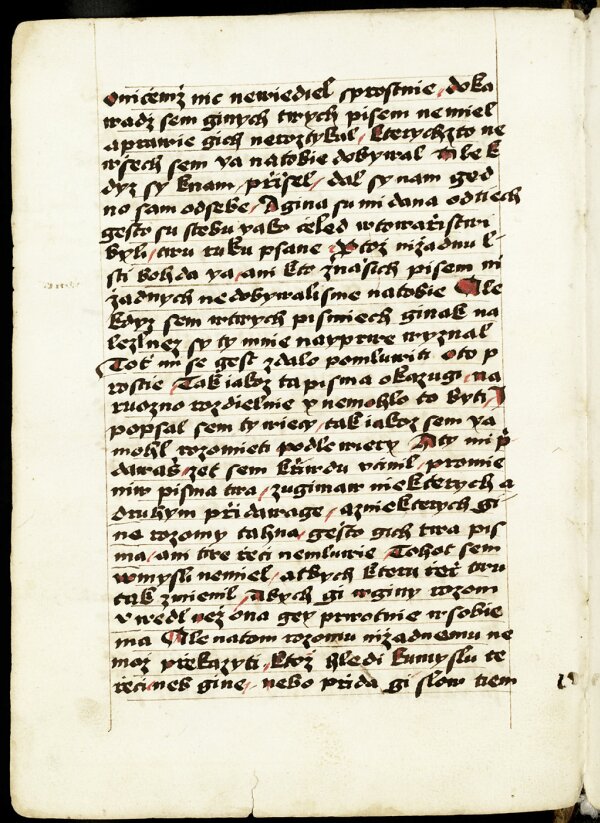 oničemž nic newiediel sprostnie / doka
wadž sem giných twych pisem nemiel
a prawie gich neroztykal / kterychžto ne
wssech sem ya natobie dobywal Ale k
dyz sy knam / přissel / dal sy nam ged
no sam odsebe / A gina su mi dana odtiech
gessto su stebu yako čeled wtowařistwi
byli / twu ruku psane / Protož nižadnu l
sti bohda ya / ani kto znassich pisem ni
žadnych nedobywalisme natobie Ale
kdyz sem wtwych pismiech ginak na
lezl nez sy ty mnie nayprwe wyznal
Toť mi se gest zdalo pomluwiti oto p
rostie / Tak iakoz ta pisma okazugi / na
ruozno rozdielnie y nemohlo to byti / A
popsal sem ty wiecy / tak iakoz sem ya
mohl rozomieti podle wiery A ty mi př
dawass / zet sem křiwdu včinil / promie
niw pisma twa / zugimaw niekterych a
druhym přidawage / a zniekterych gi
ne rozomy tahna / gessto gich twa pis
ma / ani twe řeči nemluwie / Tohot sem
wmysli nemiel / atbych kteru řeč twu
tak zmienil / Abych gi wginy rozom
vwedl než ona gey prwotnie wsobie
ma Ale natom rozomu nižadnemu ne
mož překazyti / ktož hledi kumyslu te
řeči neb gine / nebo přida gi slow tiem